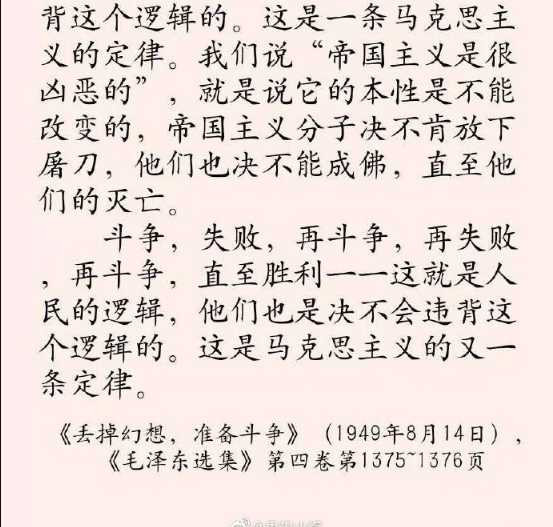 背这个逻辑的。这是一条马克思主
义的定律。我们说“帝国主义是很
凶恶的”，就是说它的本性是不能
改变的，帝国主义分子决不肯放下
屠刀，他们也决不能成佛，直至他
们的灭亡。
斗争，失败，再斗争，再失败
，再斗争，直至胜利一一这就是人
民的逻辑，他们也是决不会违背这
个逻辑的。这是马克思主义的又一
条定律。
《丢掉幻想，准备斗争》（1949年8月14日），
《毛泽东选集》第四卷第1375~1376页